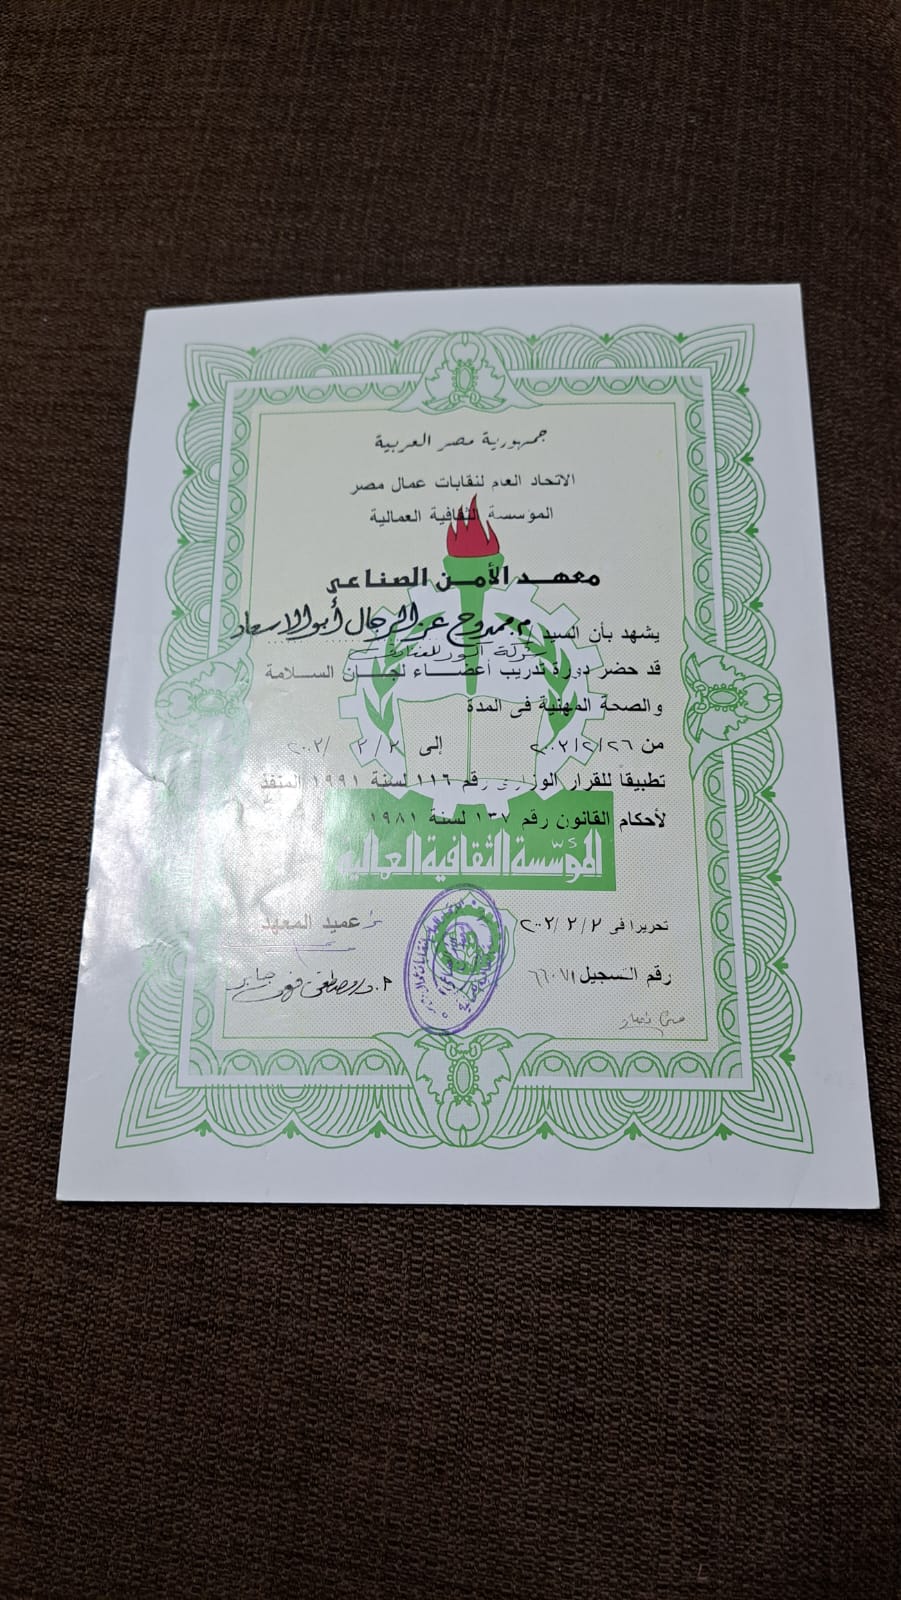 جمهورية مصر العربية
الاتحاد العام لنقابات عمال مصر
المؤسسة الثقافية العمالية
معهد الأمن الصناعى
يشهد بأن السيد / م. ممدوح عز الرجال أبو الاسعاد
شركة
قد حضر دورة تدريب أعضاء لجان السلامة
والصحة المهنية فى المدة
من ٢٠٠٢/٢/٢٦ إلى ٢٠٠٢/٣/٢
تطبيقاً للقرار الوزارى رقم ١١٦ لسنة ١٩٩١ المنفذ
لأحكام القانون رقم ١٣٧ لسنة ١٩٨١
المؤسسة الثقافية العمالية
تحريرا فى ٢٠٠٢/٣/٢
عميد المعهد
رقم التسجيل ٦٦٠٧١